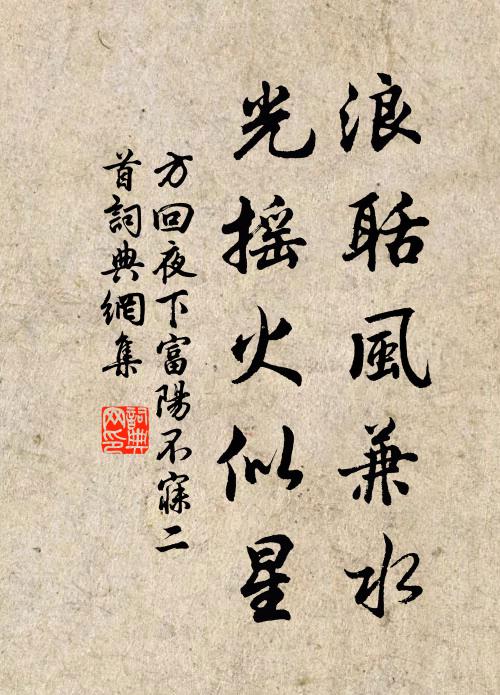 浪聒風兼水
光摇火似星
方回夜下富陽不寐二
首詞典網集
詞典
网印